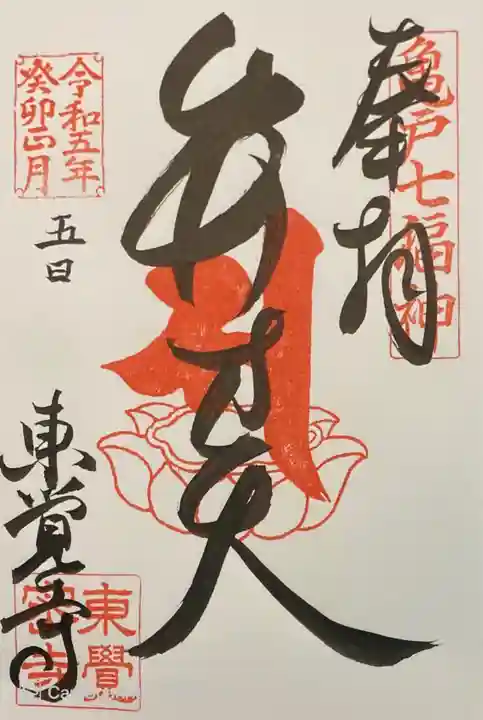 亀戸七福神
奉拝
弁才天
令和五年
癸卯正月
五日
東覺寺
東覺
密寺